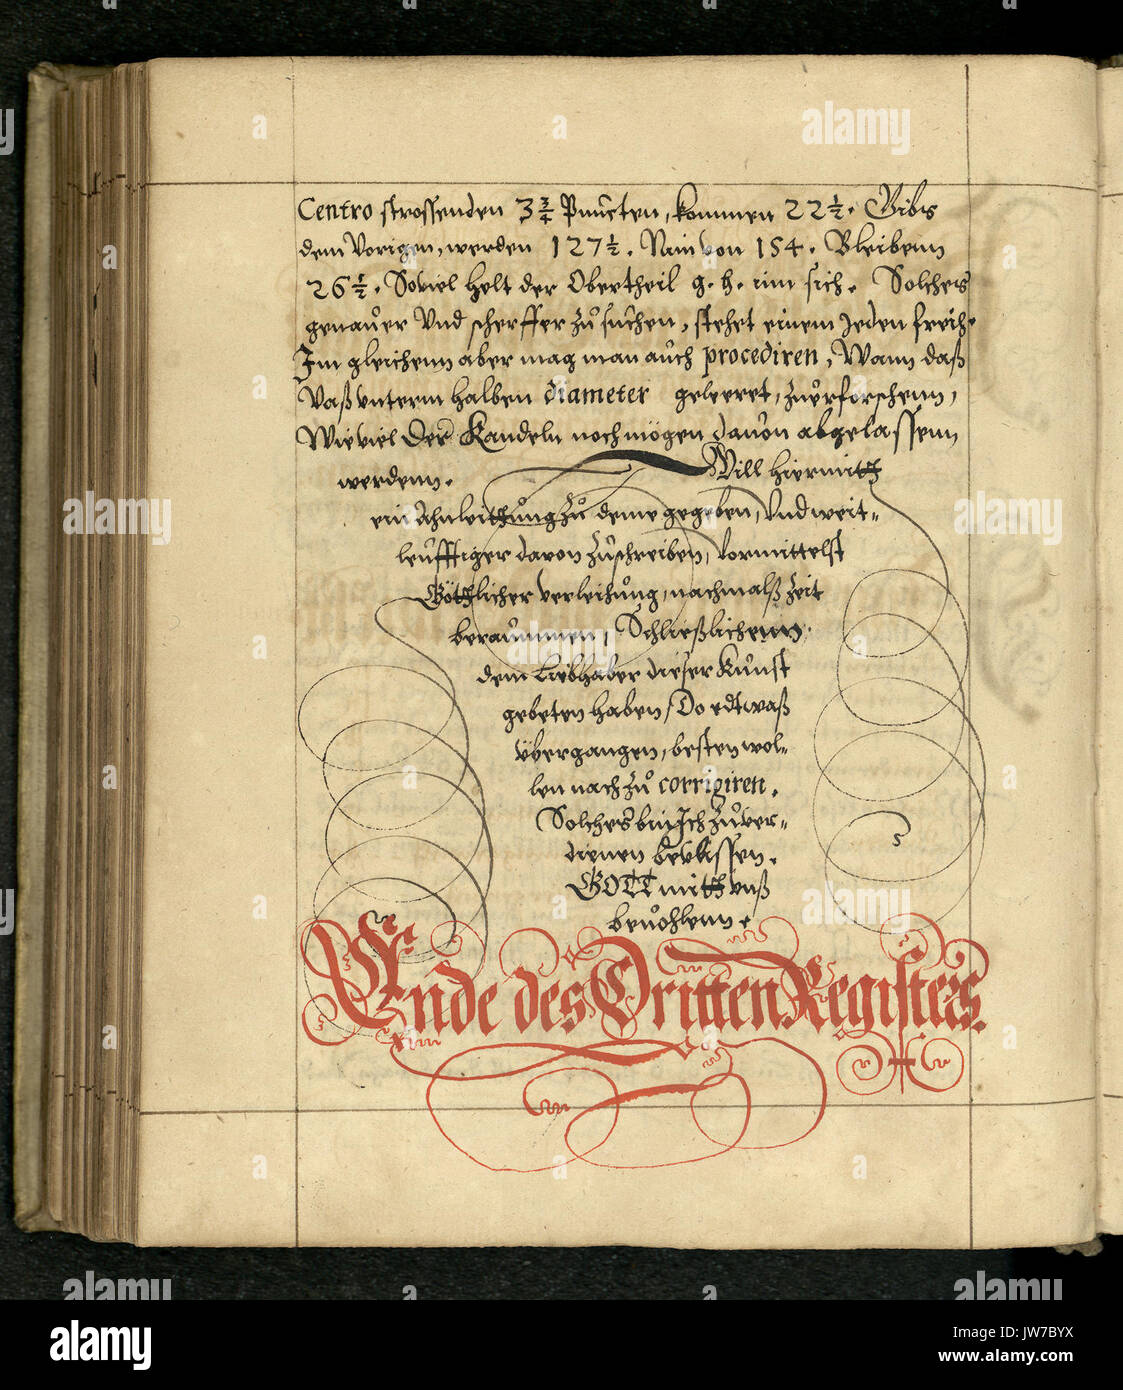 Centro strossenden 3¾ Puncten, kommen 22½. Gibs
dem Vorigen, werden 127½. Nim von 154. Bleibenn
26½. Soviel helt der Obertheil g. h. inn sich. Solches
genauer Vnd scherffer zu suchen, stehet einem Jeden freih.
Im gleichenn aber mag man auch procediren, Wann daß
Vaß vnterm halben diameter geleeret, zuerforschenn,
Wie viel Der Kandeln noch mögen dauon abgelassenn
werdenn. Will hiermitth
ein Anleithung zu deme gegeben, Vnd weit-
leufftiger davon zuschreiben, Vormittelst
Götthlicher verleihung, nachmalß Zeit
beraummen, Schließlichenn
dem Liebhaber dieser Kunst
gebeten haben, Do edtwaß
übergangen, besten wol-
len nach zu corrigiren.
Solches bin Ich zu ver-
dienen beulissen.
GOTT mitth vnß
beuohlenn.
Ende des Dritten Registers.
alamy
alamy stock photo
JW7BYX
www.alamy.com